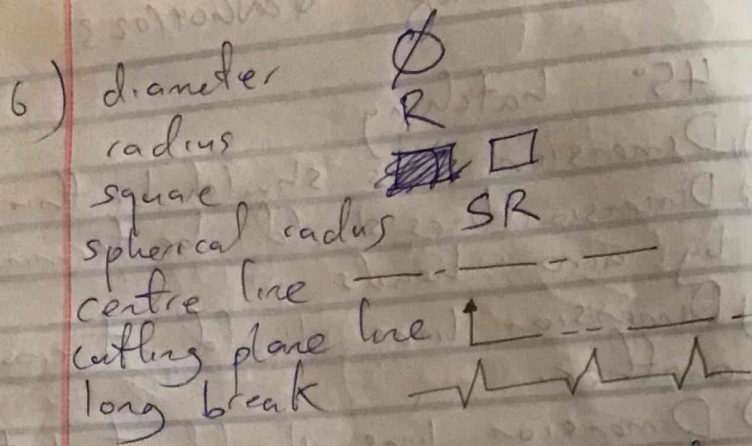 6) diameter Ø
radius R
square □
spherical radus SR
centre line
cutting plane line
long break